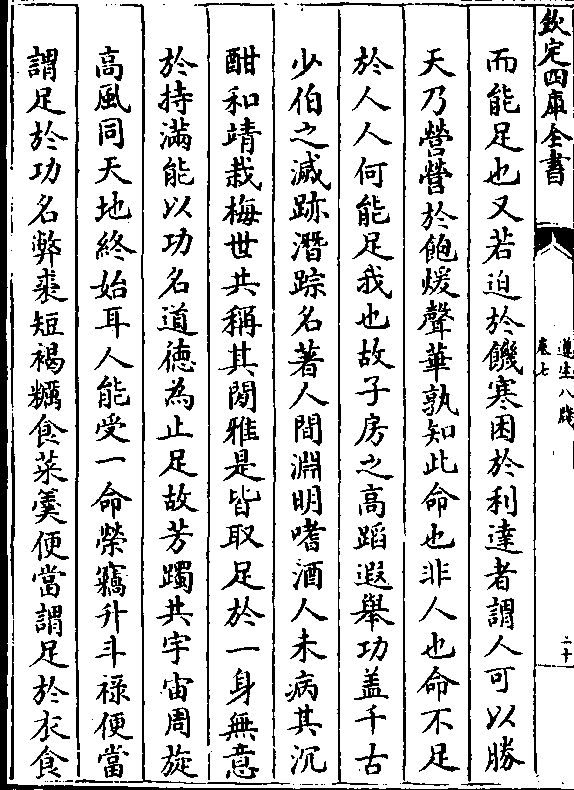 欽定四庫全書
遵生八牋
卷七
二十
而能足也又若迫於饑寒困於利達者謂人可以勝
天乃營營於飽煖聲華孰知此命也非人也命不足
於人人何能足我也故子房之高蹈遐舉功盖千古
少伯之滅跡潛踪名著人間淵明嗜酒人未病其沉
酣和靖栽梅世共稱其閒雅是皆取足於一身無意
於持滿能以功名道德為止足故芳躅共宇宙周旋
高風同天地終始耳人能受一命榮竊升斗祿便當
謂足於功名弊裘短褐糲食菜羹便當謂足於衣食